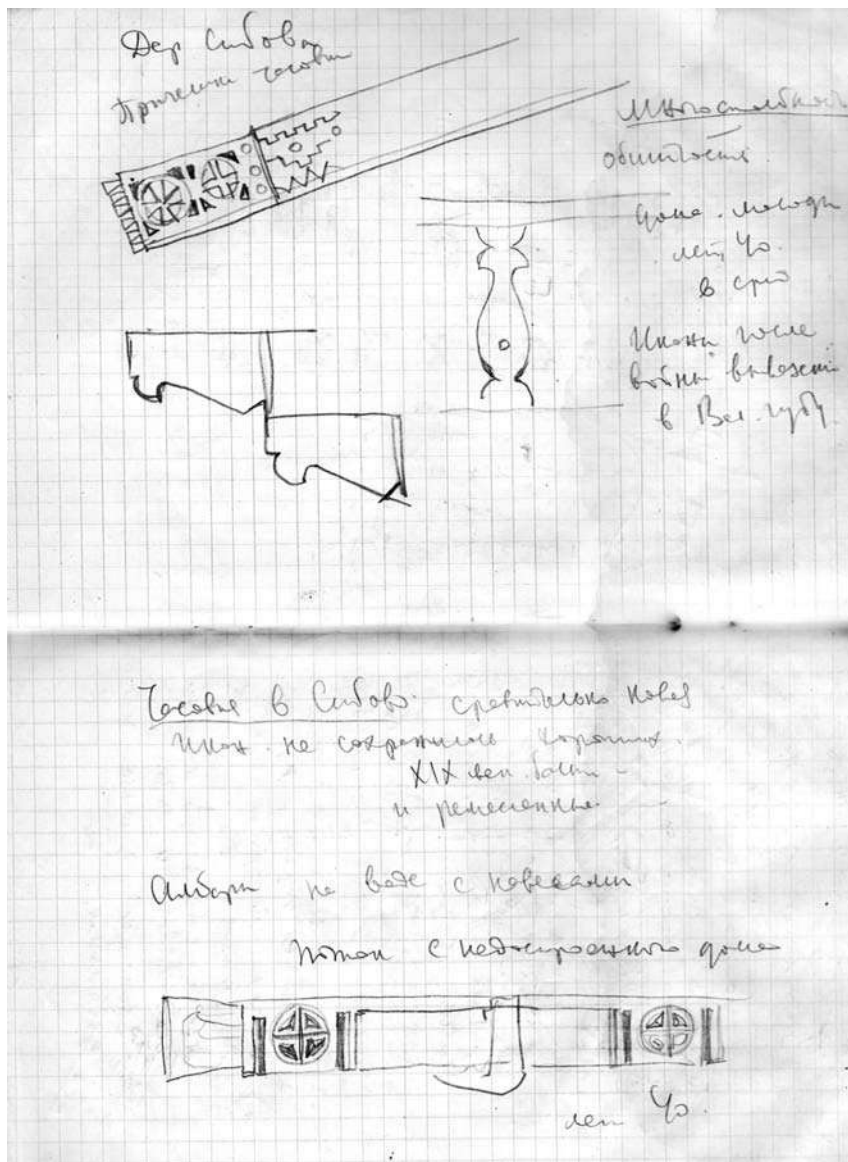 Дер Сибово
Причелины часовни
Многостолбность
обшитость
дома. молодые
лет 40.
в сред
Иконы после
войны вывезены
в Вел. губу.
Часовня в Сибово. сравнительно новая
икон не сохранилось хороших.
XIX век
и ремесленные
Амбары на воде с навесами
с недостроенного дома
лет 40.